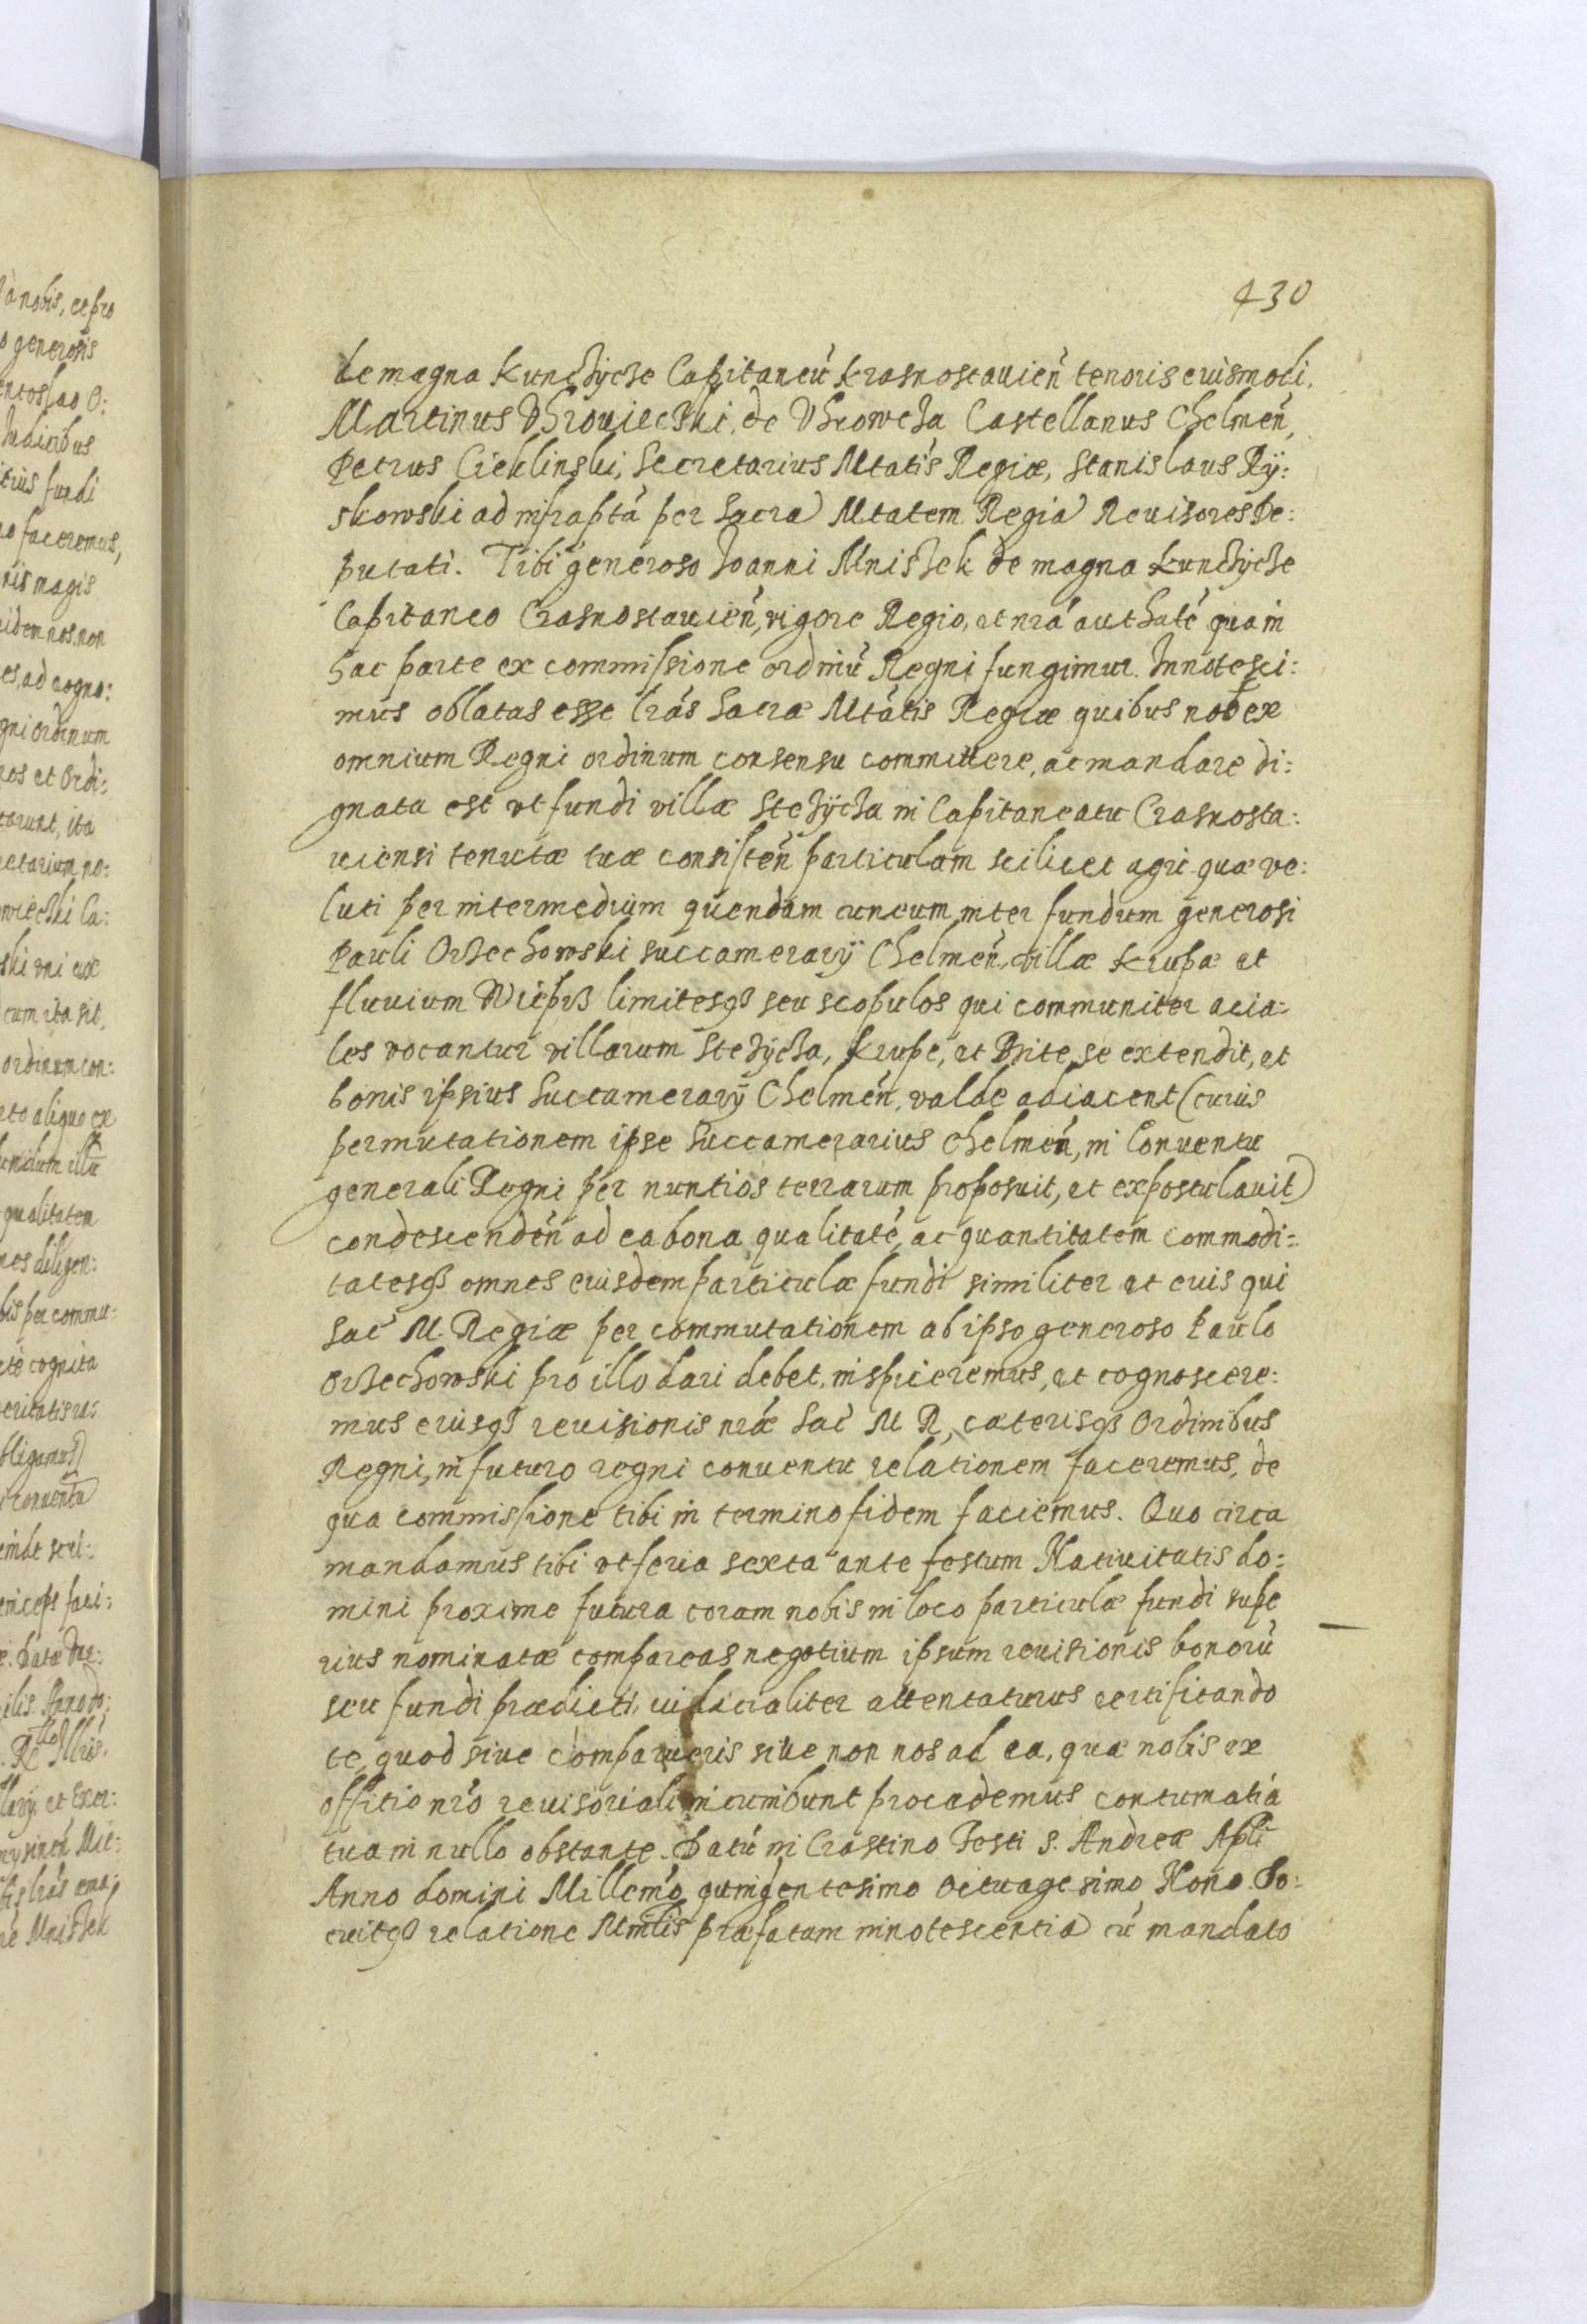 430
de magna Kunczÿcze Capitaneũ Krasnostauień tenoris euismodi.
Martinus Vhrouieczki, de Vhrowcza Castellanus Chelmeń,
Petrus Cieklinski, Secretarius Mtatis Regiæ, Stanislaus Rÿ:
skowski ad infraptá per Sacrã Mtatem Regiã Reuisores De:
putati. Tibi generoso Joanni Mniszek de magna Kunczÿcze
Capitaneo Crasnostauień, vigore Regio, et nrá authate qua in
hac parte ex commissione ordinũ Regni fungimur. Innotesci:
mus oblatas esse lrás Sacræ Mtatis Regiæ quibus nob ex
omnium Regni ordinum consensu committere, ac mandare di:
gnata est vt fundi villæ Stezÿcza in Capitaneatu Crasnosta:
uiensi tenutæ tuæ consisteń particulam scilicet agri quæ ve:
luti per intermedium quendam cuneum inter fundum generosi
Pauli Orzechowski succamerarÿ Chelmeń, villæ Krupæ et
fluuium Wieprz limitesq3 seu scopulos qui communiter acia:
les vocantur villarum Stezÿcza, Krupe, et Bzite, se extendit, et
bonis ipsius Succamerarÿ Chelmeń, valde adiacent (cuius
permutationem ipse Succamerarius Chelmeń, in Conuentu
generali Regni per nuntios terrarum proposuit, et expostulauit)
condescendeń ad ea bona qualitaté, ac quantitatem commodi:
tatesq3 omnes eiusdem particulæ fundi similiter et euis qui
Sac̃ M. Regiæ per commutationem ab ipso generoso Paulo
Orzechowski pro illo dari debet, inspiceremus, et cognoscere:
mus eiusq3 reuisionis nræ Sac̃ M R, cæterisq3 Ordinibus
Regni, in futuro regni conuentu relationem faceremus, de
qua commissione tibi in termino fidem faciemus. Quo circa
mandamus tibi vt feria sexta ante festum Natiuitatis do:
mini proxime futura coram nobis in loco particulæ fundi supe
rius nominatæ compareas negotium ipsum reuisionis bonorũ
seu fundi prædicti, iudicialiter attentaturus certificando
te, quod siue comparueris siue non nos ad ea, quæ nobis ex
offitio nrõ reuisoriali incumbunt procedemus contumatiá
tua in nullo obstante. Datũ in Crastino Festi S. Andreæ Apli
Anno domini Millemo quingentesimo Octuagesimo Nono. Do:
cuitq3 relatione Mintlis præfatam innotescentiã cũ mandato